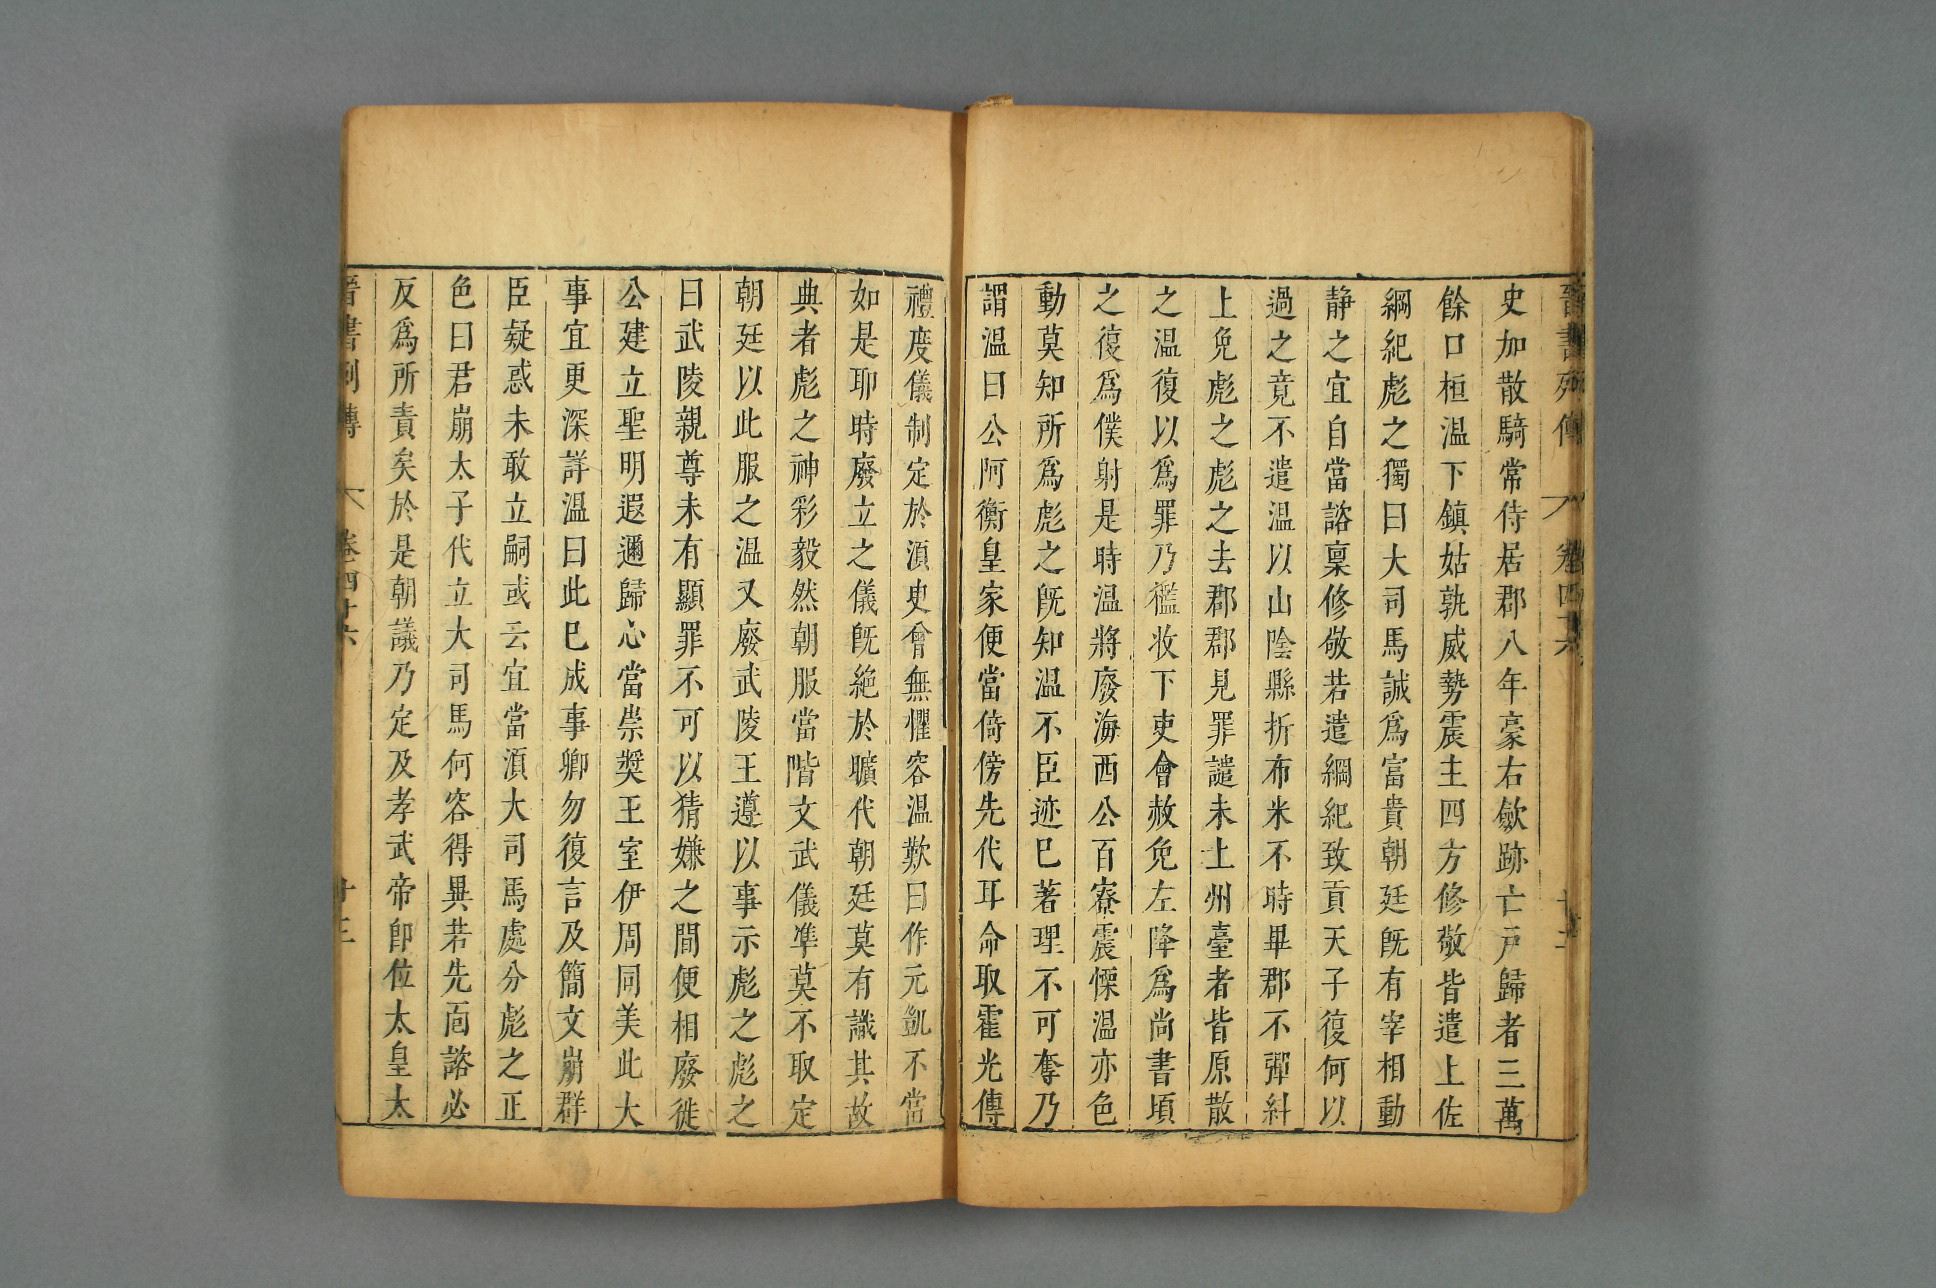 晉書列傳 卷四十六
史加散騎常侍居郡八年豪右歛跡亡戸歸者三萬
餘口桓温下鎮姑孰威勢震主四方修敬皆遣上佐
綱紀彪之獨曰大司馬誠爲富貴朝廷旣有宰相動
静之宜自當諮稟修敬若遣綱紀致貢天子復何以
過之竟不遣温以山陰縣折布米不時畢郡不彈糾
上免彪之彪之去郡郡見罪譴未上州臺者皆原散
之温復以爲罪乃檻收下吏會赦免左降爲尚書頃
之復爲僕射是時温將廢海西公百寮震慄温亦色
動莫知所爲彪之旣知温不臣迹已著理不可奪乃
謂温曰公阿衡皇家便當倚傍先代耳命取霍光傳
禮度儀制定於湏史曾無懼容温歎曰作元凱不當
如是耶時廢立之儀旣絶於曠代朝廷莫有識其故
典者彪之神彩毅然朝服當階文武儀凖莫不取定
朝廷以此服之温又廢武陵王遵以事示彪之彪之
曰武陵親尊未有顯罪不可以猜嫌之間便相廢徙
公建立聖明遐邇歸心當崇奬王室伊周同美此大
事宜更深詳温曰此已成事卿勿復言及簡文崩群
臣疑惑未敢立嗣或云宜當湏大司馬處分彪之正
色曰君崩太子代立大司馬何容得異若先面諮必
反爲所責矣於是朝議乃定及孝武帝卽位太皇太
晉書列傳 卷四十六 十三